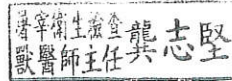 屠宰衛生檢查
獸醫師主任龔志堅